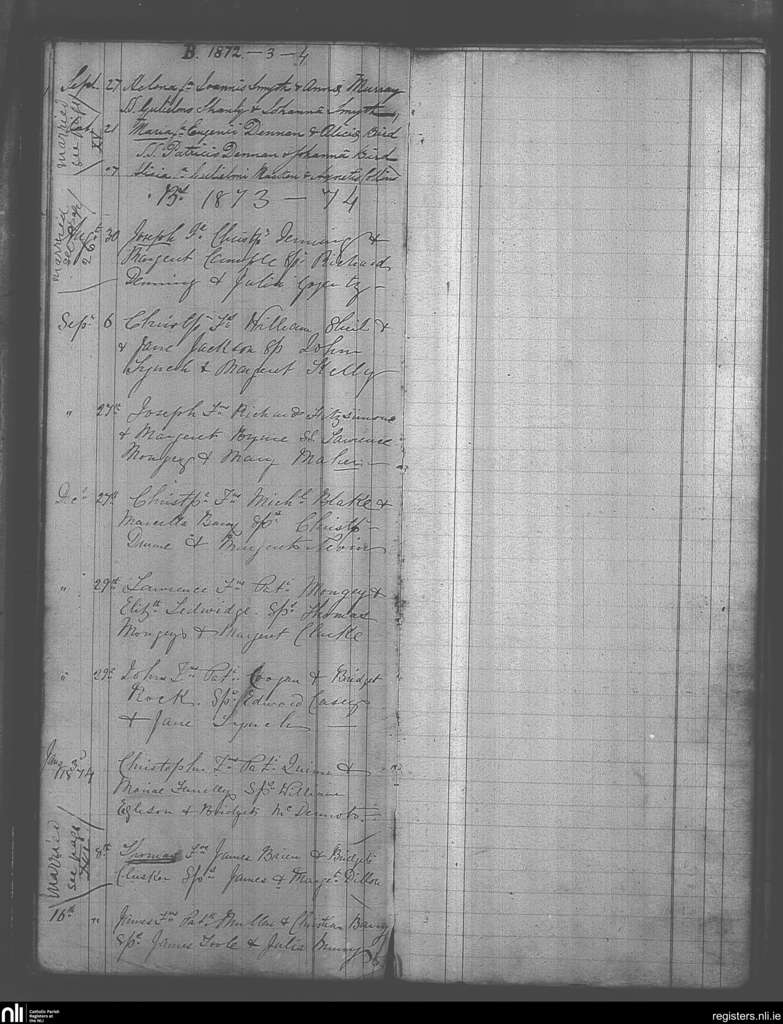 B. 1872 - 3 - 4
Sept. 27 Helena fa Joannis Smyth & Anna Murray
SS. Gulielmo Shanly & Johanna Smyth
21 Maria fa Eugenii Dennan & Alicia Bird
SS. Patricio Dennan & Johanna Bird
27 Gulielmi &
Bd 1873 - 74
married see page
30 Joseph Fs Christpr Denning &
Margent Sps Richard
Denning & Julia
Sepr 6 Christpr Fs William Shiel &
& Jane Jackson Sp John
Lynch & Margent Kelly
" 27th Joseph Fms Richard Fitzsimons
& Margaret Byrne SS. Lawrence
Mongey & Mary Maher
Decr 27th Christpr Fms Michl Blake &
Marcella Sps Christpr
Dunne & Margaret Nevin
" 29th Lawrence Fms Patk Mongey &
Elizth Ledwidge. Sps Thomas
Mongey & Margent Clarke
" 29th John Fms Patk Coogan & Bridget
Rock. Sps Edward Casey
& Jane Lynch
Jany 3rd 1874 Christopher Fms Patk Quinn &
Sps William
Egleson & Bridget McDermott
married see page
8th Thomas Fms James Brien & Bridget
Clusker Sps James & Margt Dillon
16th " James Fms Patk Mullen & Christian Barry
Sps James Toole & Julia
nli Catholic Parish
Registers at
the NLI
registers.nli.ie